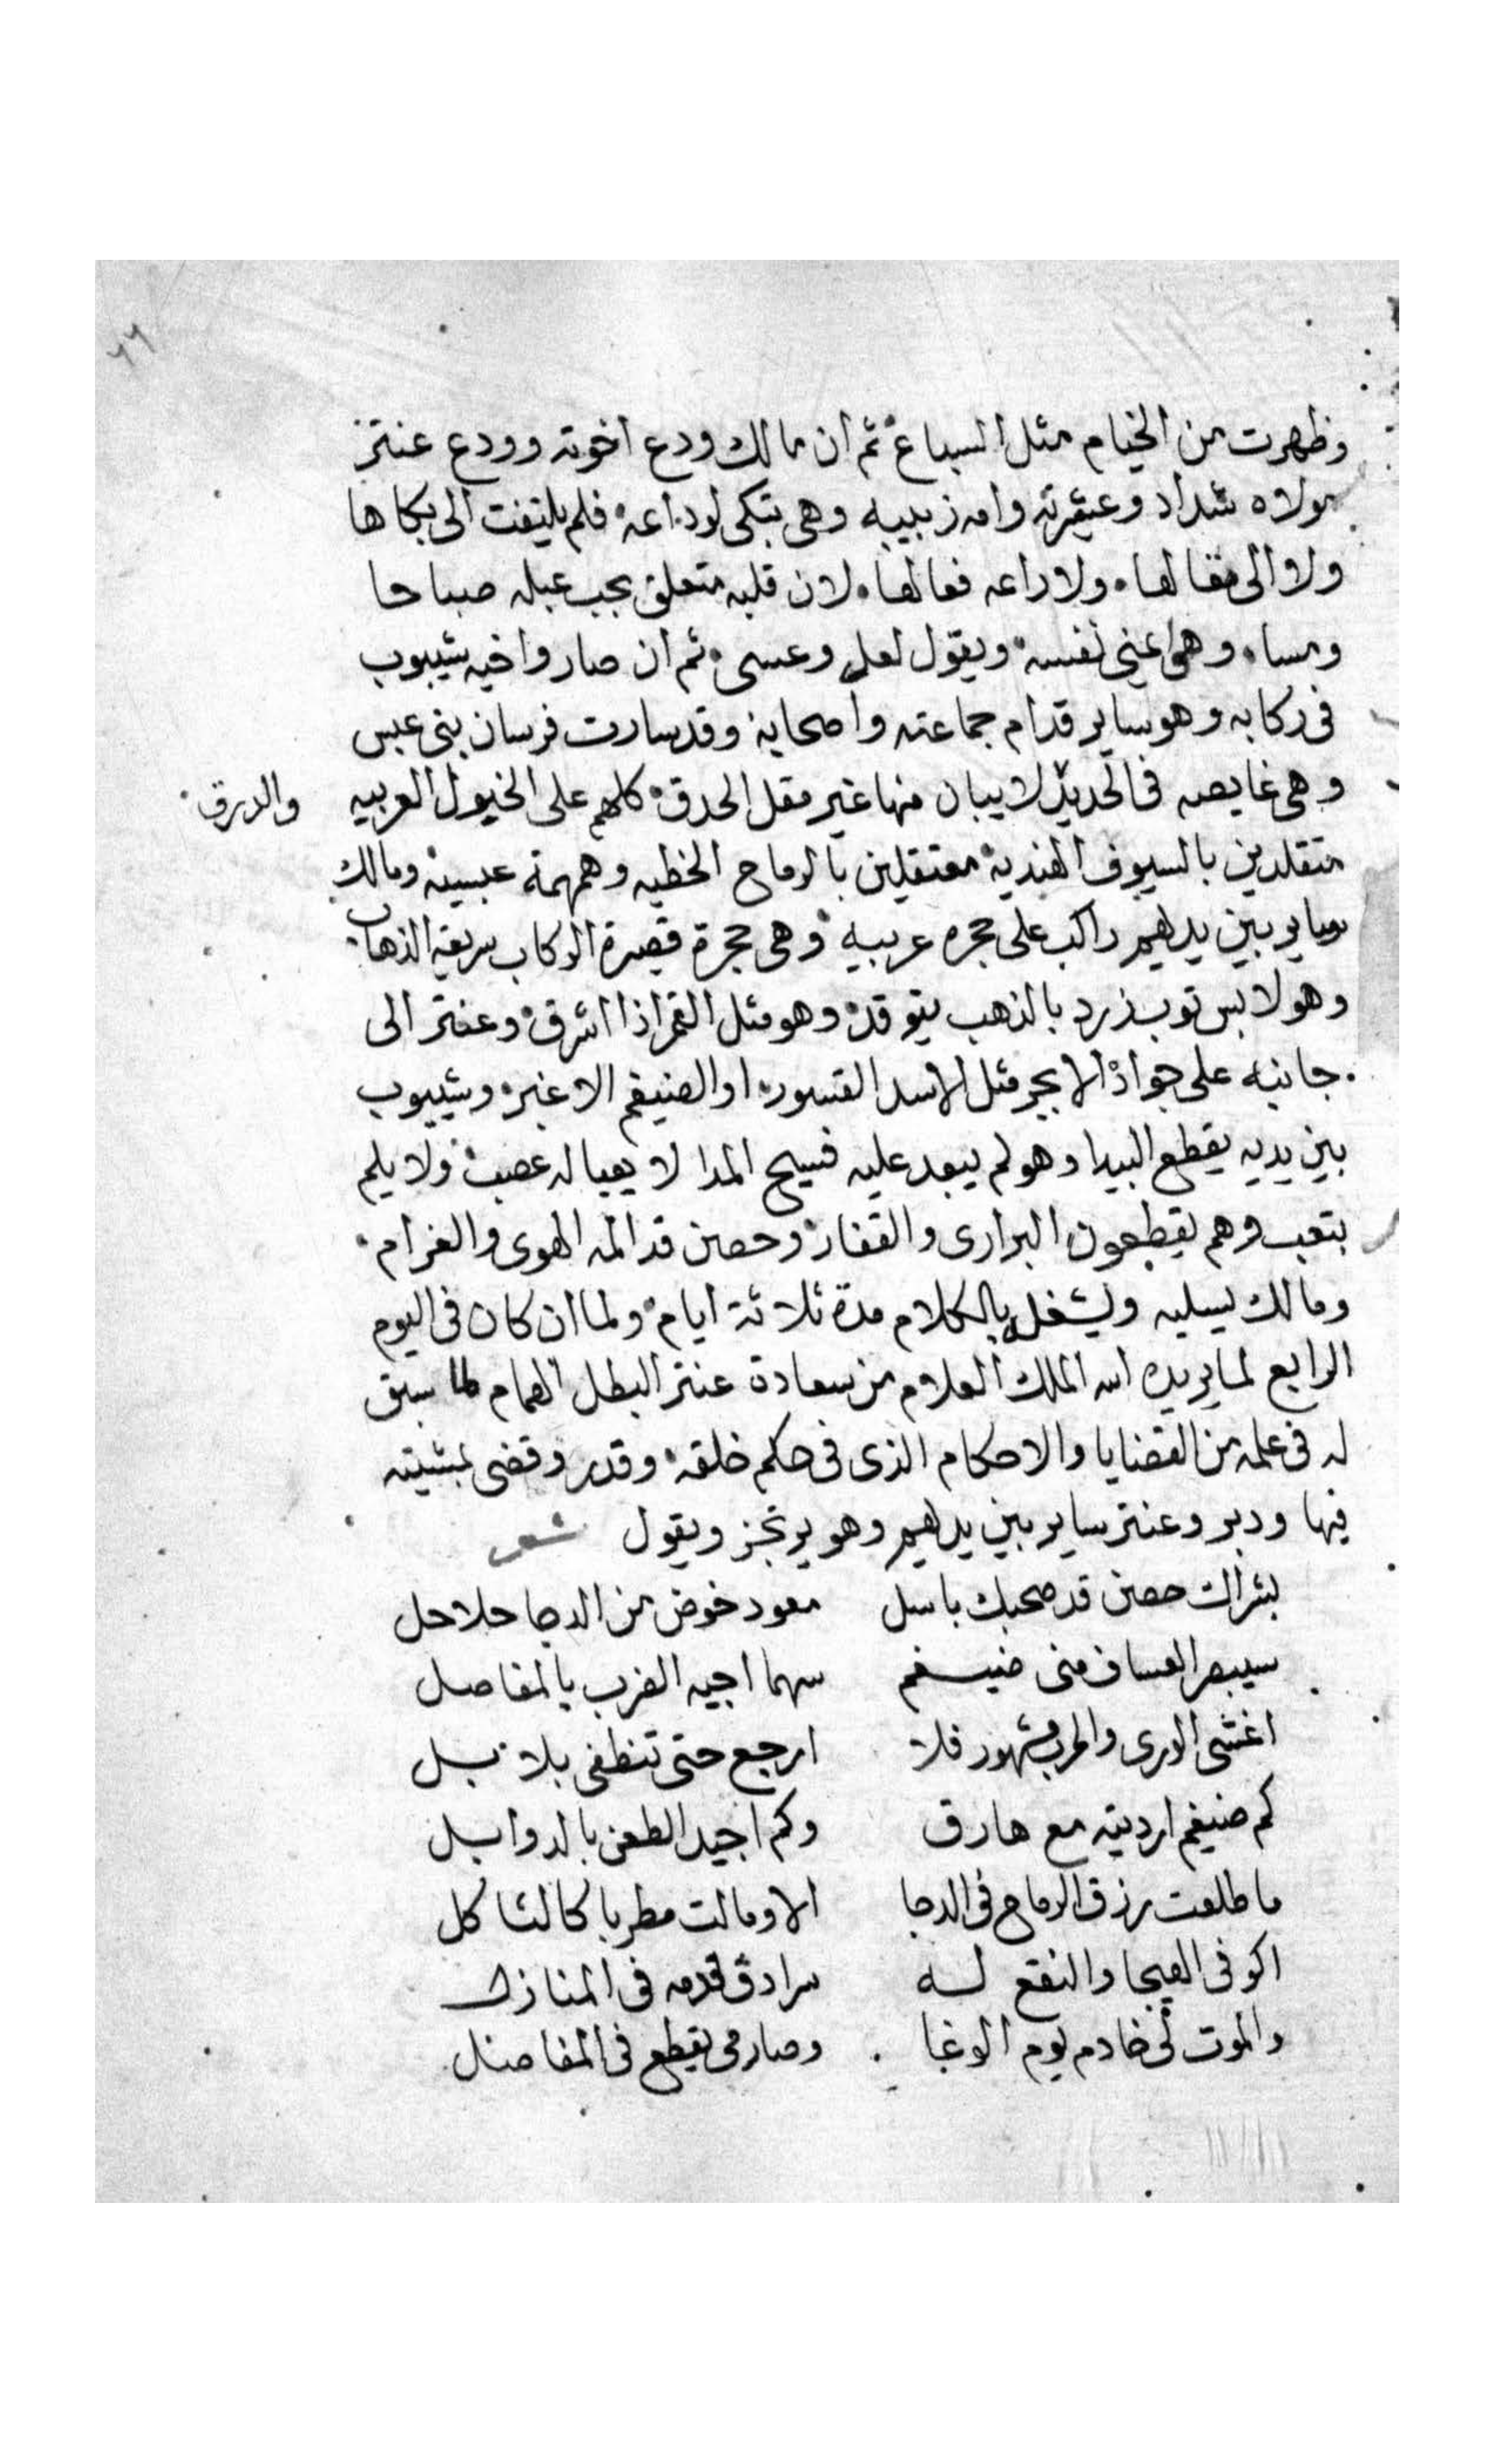 ٦٦
وظهرت من الخيام مثل السباع ثم ان مالك ودع اخوته وودع عنتر
مولاه شداد وعشيرته وامه زبيبه وهى تبكى لوداعه فلم يلتفت الى بكاها
ولا الى مقالها ولا راعه فعالها لان قلبه متعلق بحب عبله صباحا
ومساء وهى نفسه ويقول لعل وعسى ثم ان صار واخيه شيبوب
فى ركابه وهو ساير قدام جماعته واصحابه وقد سارت فرسان بنى عبس
وهى غايصه فى الحديد لا يبان منها غير مقل الحدق كلهم على الخيول العربيه والدرق
متقلدين بالسيوف الهنديه معتقلين بالرماح الخطيه وهمهمة عبسيه ومالك
ساير بين يديهم راكب على حجره عربيه وهى حجرة قصيرة الركاب سريعة الذهاب
وهو لابس توب زرد بالذهب يتوقد وهو مثل القمر اذا اشرق وعنتر الى
جانبه على جواده الابجر مثل الاسد القسور او الضيغم الاغبر وشيبوب
بين يديه يقطع البيدا وهو لم يبعد عليه فسيح المدا لا يعيا له عصب ولا يلم
بتعب وهم يقطعون البرارى والقفار وحصن قد المه الهوى والغرام
ومالك يسليه ويشغله بالكلام مدة ثلاثة ايام ولما ان كان فى اليوم
الرابع لما يريده الله الملك العلام من سعادة عنتر البطل الهمام لما سبق
له فى علمه من القضايا والاحكام الذى فى حكم خلقه وقدر وقضى بمشيته
فيها ودبر وعنتر ساير بين يديهم وهو يرتجز ويقول شعر
بشراك حصن قد صحبك باسل معود خوض من الدجا حلاحل
سيبصر العساف منى ضيغم سهما اجيه الضرب بالمفاصل
اغشى الورى والحرب مشهور فلا ارجع حتى تنطفى بلابل
كم ضيغم ارديته مع مارق وكم اجيد الطعن بالدوابل
ما طلعت زرق الرماح فى الدجا الا ومالت مطربا كالثاكل
اكر فى الهيجا والنقع له سرادق قدمه فى المنازل
والموت لى خادم يوم الوغا وصارمى يقطع فى المفاصل